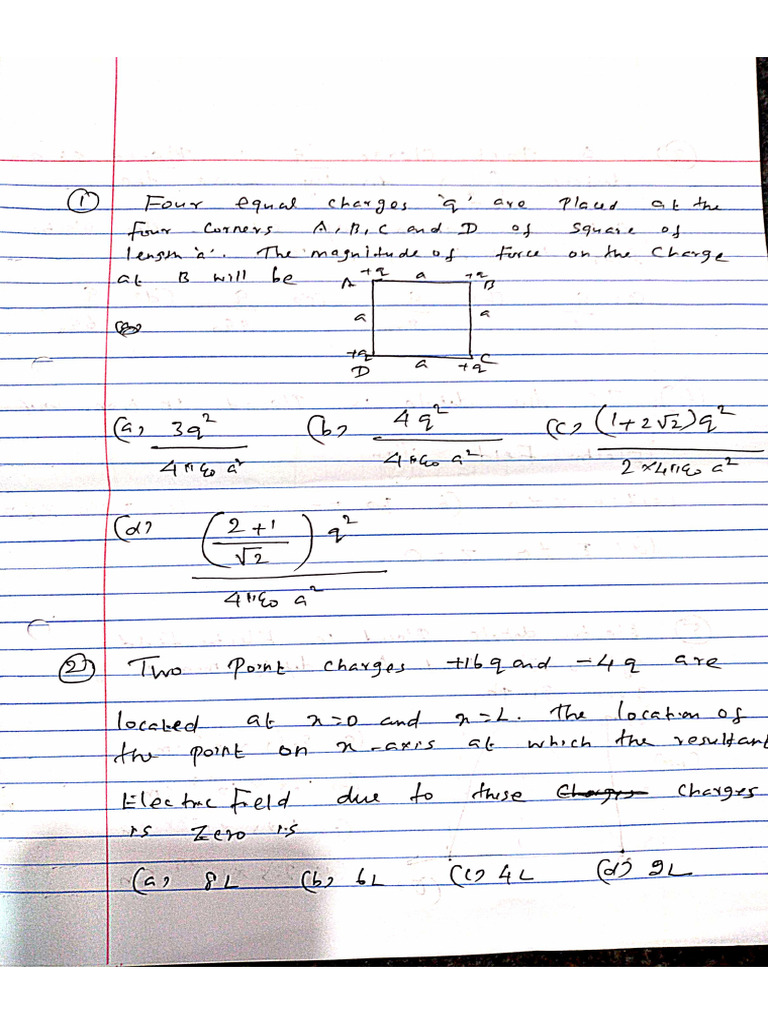 ① Four equal charges 'q' are placed at the
four corners A, B, C and D of square of
length 'a'. The magnitude of force on the charge
at B will be
A +q a +q B
a a
+q D a +q C
(a) 3q² / 4πε₀ a² (b) 4q² / 4πε₀ a² (c) (1+2√2)q² / 2×4πε₀ a²
(d) (2+1 / √2) q² / 4πε₀ a²
② Two Point charges +16q and -4q are
located at x=0 and x=L. The location of
the point on x-axis at which the resultant
Electric Field due to these charges
is Zero is
(a) 8L (b) 6L (c) 4L (d) 2L